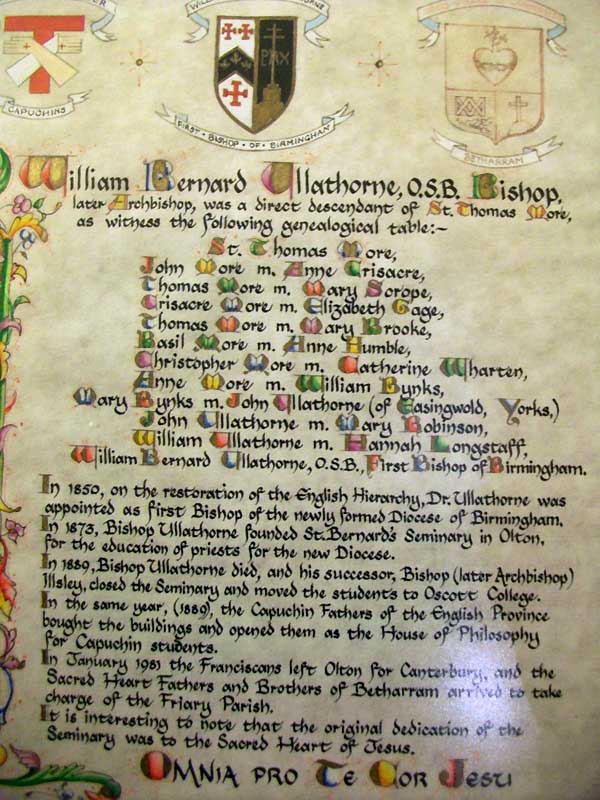 CAPUCHINS
FIRST · BISHOP · OF · BIRMINGHAM
BETHARRAM
William Bernard Ullathorne, O.S.B. Bishop,
later Archbishop, was a direct descendant of St. Thomas More,
as witness the following genealogical table:~
St. Thomas More,
John More m. Anne Crisacre,
Thomas More m. Mary Scrope,
Crisacre More m. Elizabeth Gage,
Thomas More m. Mary Brooke,
Basil More m. Anne Humble,
Christopher More m. Catherine Wharten,
Anne More m. William Bynks,
Mary Bynks m. John Ullathorne (of Easingwold, Yorks,)
John Ullathorne m. Mary Robinson,
William Ullathorne m. Hannah Longstaff,
William Bernard Ullathorne, O.S.B., First Bishop of Birmingham.
In 1850, on the restoration of the English Hierarchy, Dr. Ullathorne was
appointed as first Bishop of the newly formed Diocese of Birmingham.
In 1873, Bishop Ullathorne founded St. Bernard's Seminary in Olton,
for the education of priests for the new Diocese.
In 1889, Bishop Ullathorne died, and his successor, Bishop (later Archbishop)
Illsley, closed the Seminary and moved the students to Oscott College.
In the same year, (1889), the Capuchin Fathers of the English Province
bought the buildings and opened them as the House of Philosophy
for Capuchin students.
In January 1981 the Franciscans left Olton for Canterbury, and the
Sacred Heart Fathers and Brothers of Betharram arrived to take
charge of the Friary Parish.
It is interesting to note that the original dedication of the
Seminary was to the Sacred Heart of Jesus.
OMNIA PRO TE COR JESU